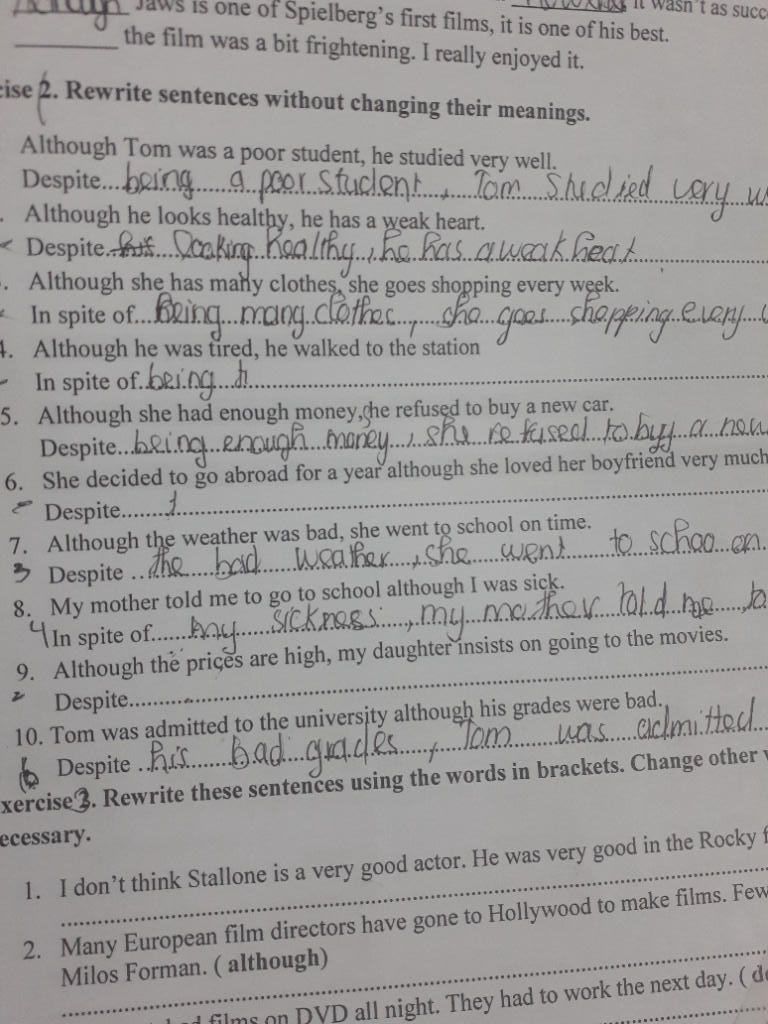 Jaws is one of Spielberg's first films, it is one of his best. it wasn't as succ
the film was a bit frightening. I really enjoyed it.
cise 2. Rewrite sentences without changing their meanings.
Although Tom was a poor student, he studied very well.
Despite...being a poor student, Tom studied very w
. Although he looks healthy, he has a weak heart.
Despite. Looking healthy, he has a weak heart
. Although she has many clothes, she goes shopping every week.
In spite of...Being many clothes, she goes shopping every
4. Although he was tired, he walked to the station
In spite of.being t
5. Although she had enough money, she refused to buy a new car.
Despite...being enough money, she refused to buy a new
6. She decided to go abroad for a year although she loved her boyfriend very much
Despite
7. Although the weather was bad, she went to school on time.
3 Despite ...the bad weather, she went to schoo on.
8. My mother told me to go to school although I was sick.
4 In spite of...my sickness, my mother told me to
9. Although the prices are high, my daughter insists on going to the movies.
2 Despite
10. Tom was admitted to the university although his grades were bad.
6 Despite ..his bad grades, Tom was admitted
xercise 3. Rewrite these sentences using the words in brackets. Change other
ecessary.
1. I don't think Stallone is a very good actor. He was very good in the Rocky f
2. Many European film directors have gone to Hollywood to make films. Few
Milos Forman. ( although)
films on DVD all night. They had to work the next day. ( de